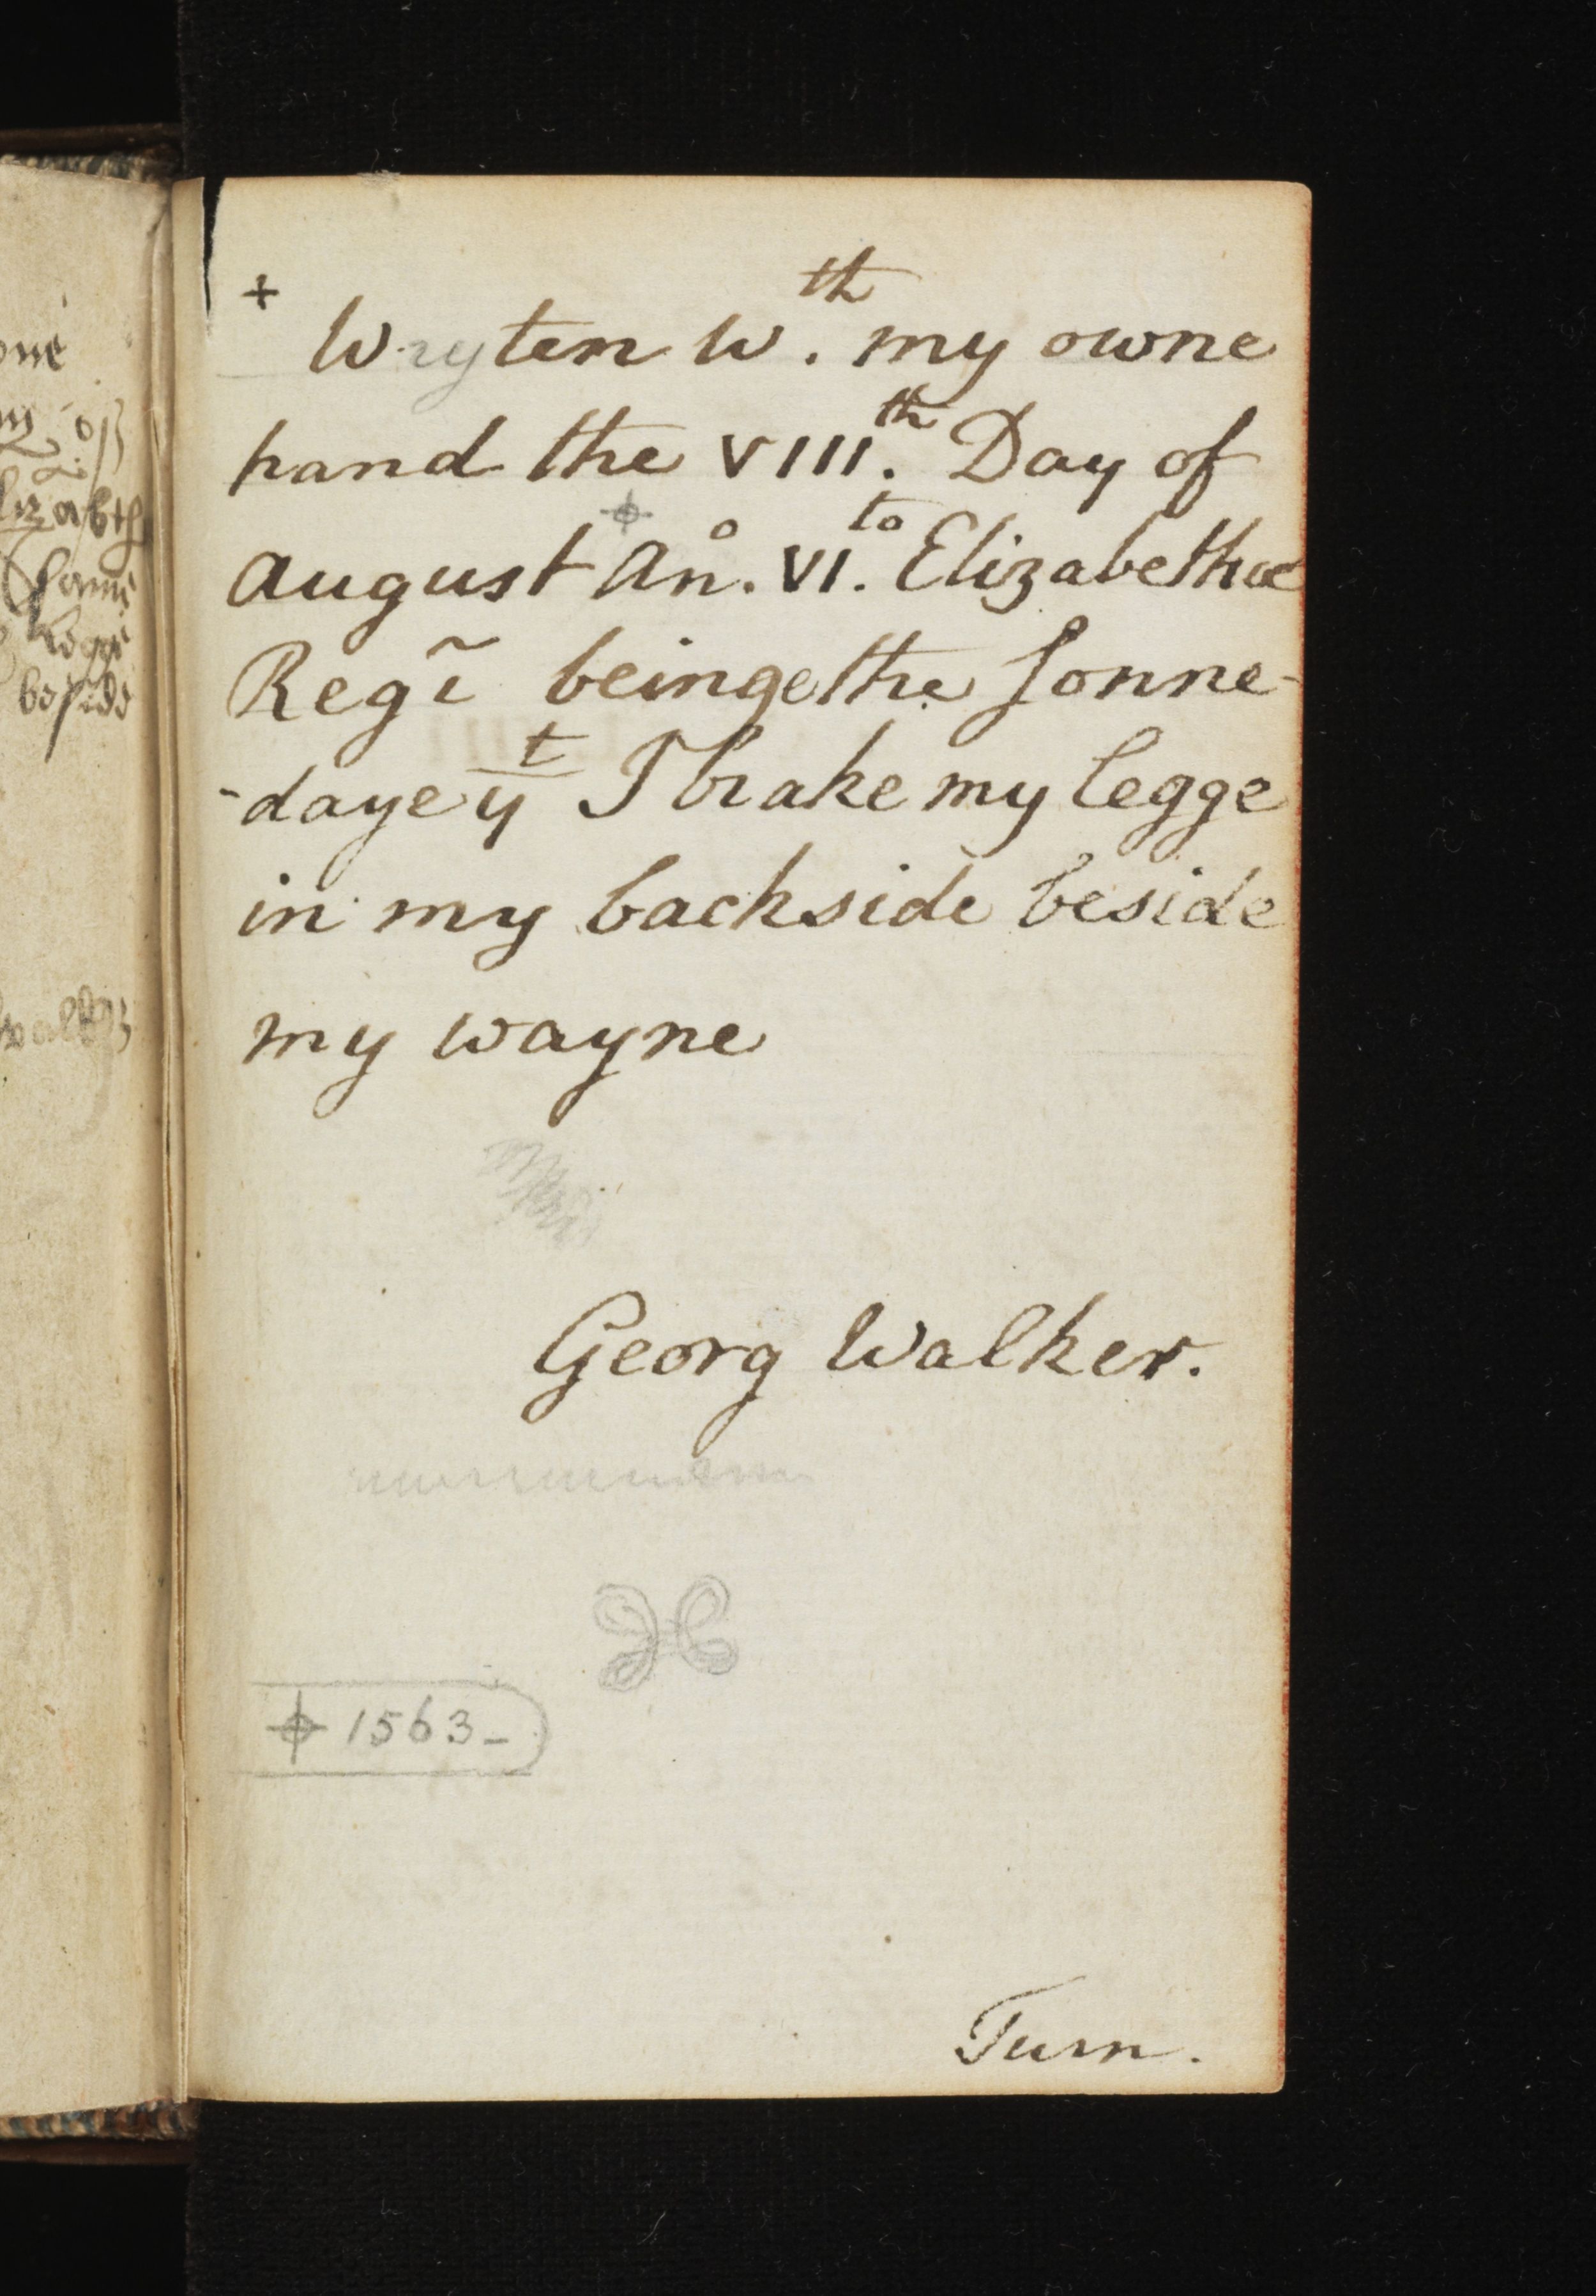 +
Wryten W.th my owne
hand the VIII.th Day of
August Ano. VI.to Elizabethæ
Regĩ beinge the Sonne-
-daye yt I brake my legge
in my backside beside
my wayne
Georg Walker.
1563-
Turn.